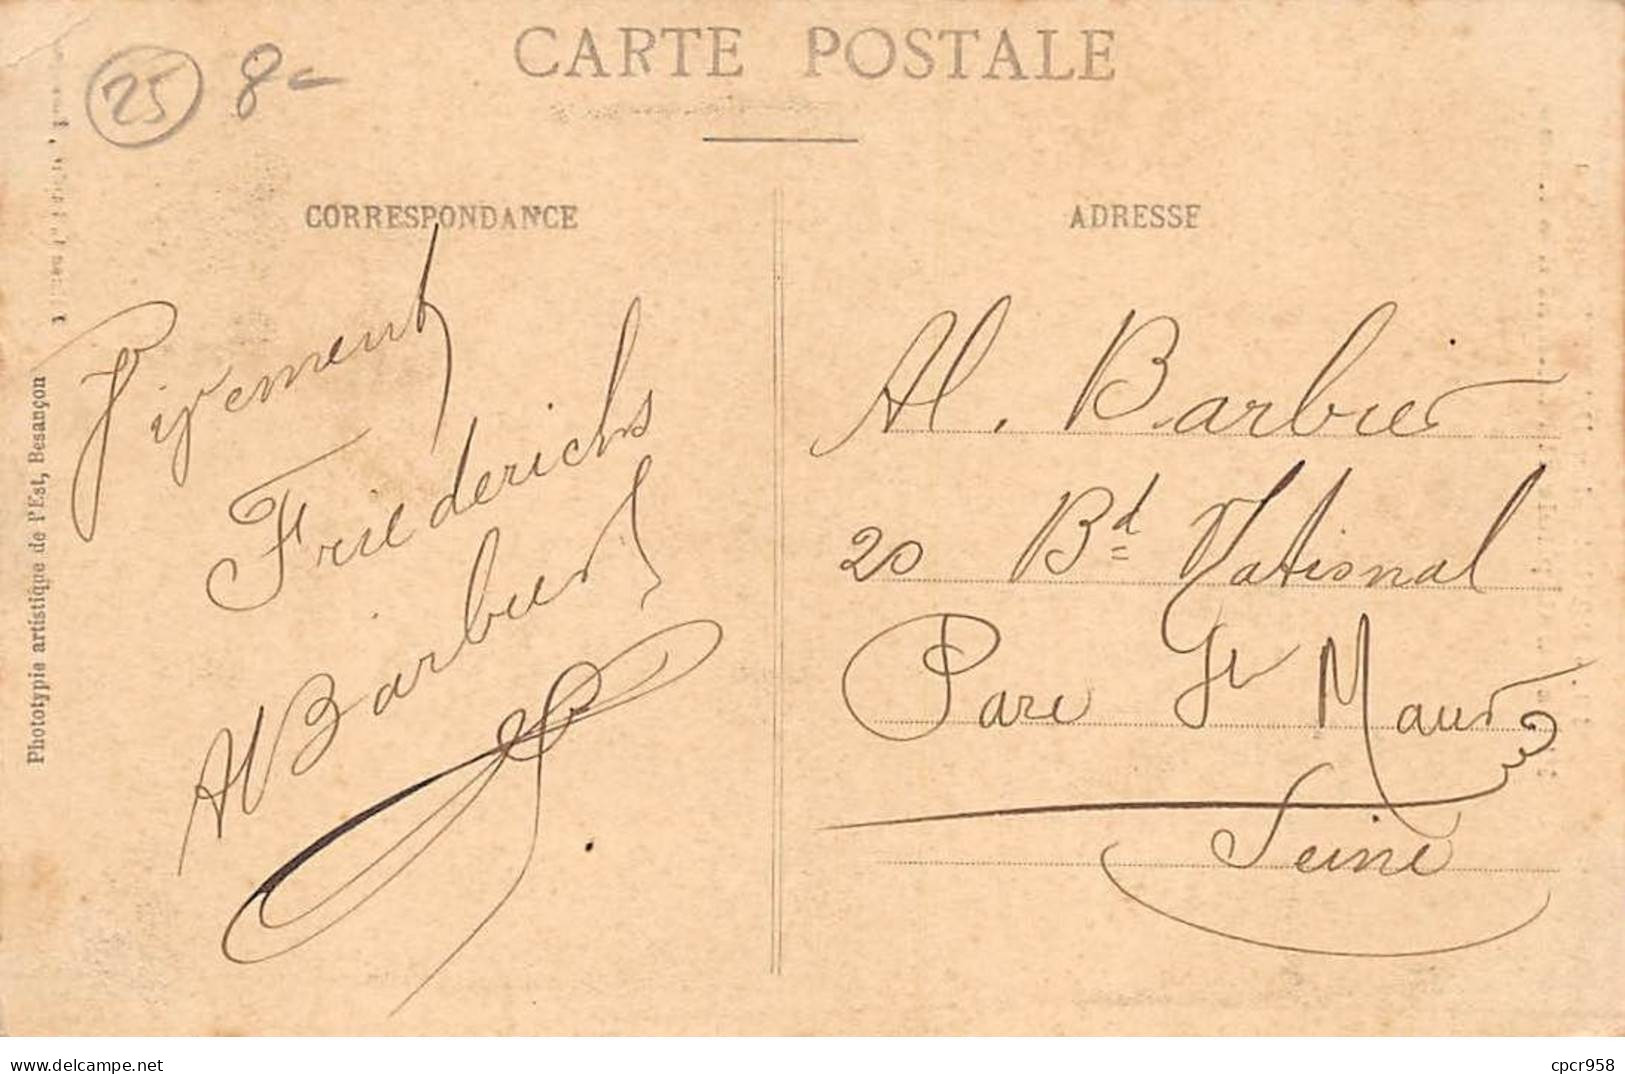 CARTE POSTALE
25 8-
CORRESPONDANCE
ADRESSE
Phototypie artistique de l'Est, Besançon
Vivement
Friederichs
Al Barbier
Al. Barbier
20 Bd National
Parc St Maur
Seine
www.delcampe.net
cpcr958